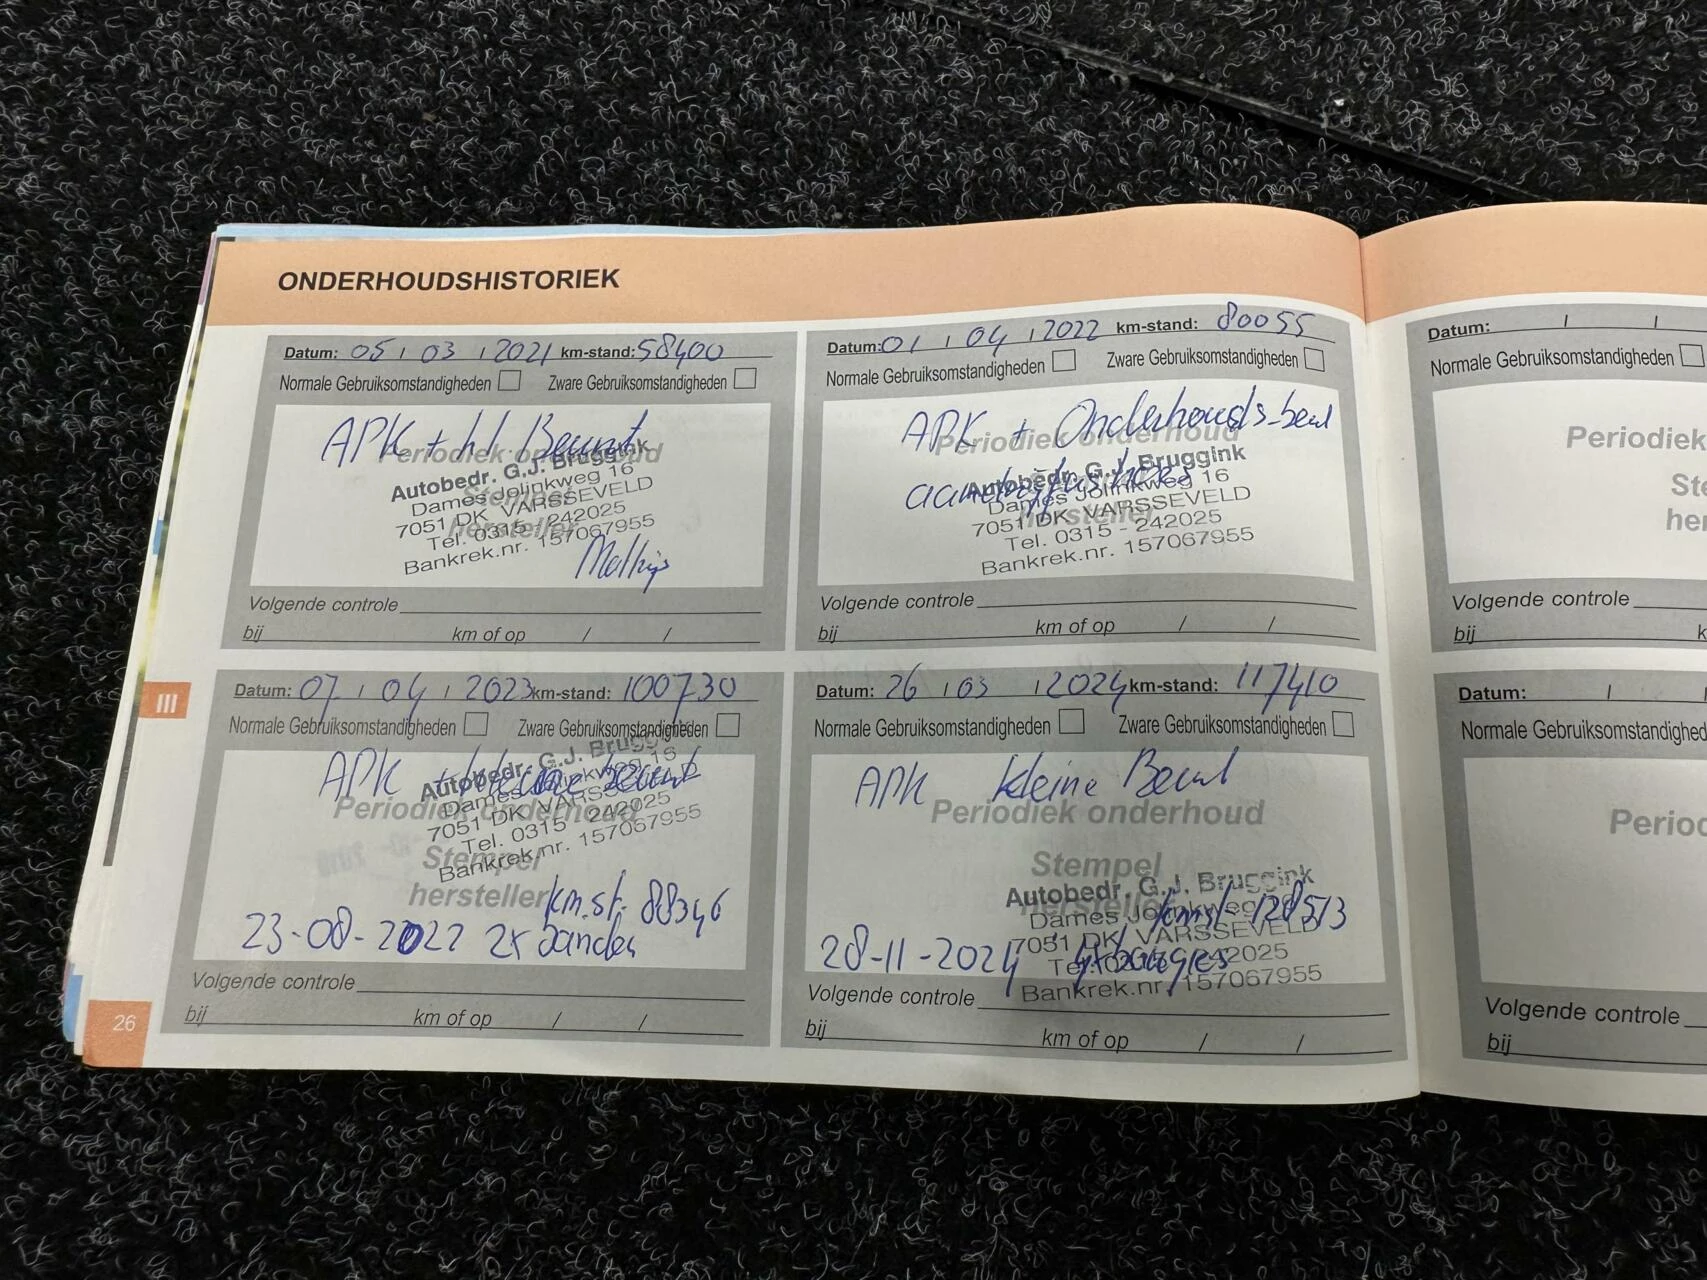 ONDERHOUDSHISTORIEK
Datum: 05 / 03 / 2021 km-stand: 58400
Normale Gebruiksomstandigheden Zware Gebruiksomstandigheden
APK + kl Beurt
Periodiek onderhoud
Stempel
hersteller
Autobedr. G.J. Bruggink
Dames Jolinkweg 16
7051 DK VARSSEVELD
Tel. 0315 - 242025
Bankrek.nr. 157067955
Volgende controle
bij km of op / /
Datum: 01 / 04 / 2022 km-stand: 80055
Normale Gebruiksomstandigheden Zware Gebruiksomstandigheden
APK + Onderhouds-beurt
Periodiek onderhoud
hersteller
Autobedr. G.J. Bruggink
Dames Jolinkweg 16
7051 DK VARSSEVELD
Tel. 0315 - 242025
Bankrek.nr. 157067955
Volgende controle
bij km of op / /
Datum: 07 / 04 / 2023 km-stand: 100730
Normale Gebruiksomstandigheden Zware Gebruiksomstandigheden
APK + kleine beurt
Periodiek onderhoud
Stempel
hersteller
Autobedr. G.J. Brugg
Dames Jolinkweg 16
7051 DK VARSSEVELD
Tel. 0315 - 242025
Bankrek.nr. 157067955
km.st. 88346
23-08-2022 2x banden
Volgende controle
bij km of op / /
Datum: 26 / 03 / 2024 km-stand: 117410
Normale Gebruiksomstandigheden Zware Gebruiksomstandigheden
APK kleine Beurt
Periodiek onderhoud
Stempel
hersteller
Autobedr. G.J. Bruggink
Dames Jolinkweg 16
7051 DK VARSSEVELD
Tel. 0315 - 242025
Bankrek.nr. 157067955
kmst- 128513
28-11-2024
Volgende controle
bij km of op / /
III
26
Datum: / /
Normale Gebruiksomstandigheden
Periodiek
Ste
her
Volgende controle
bij k
Datum: / /
Normale Gebruiksomstandighed
Period
Volgende controle
bij